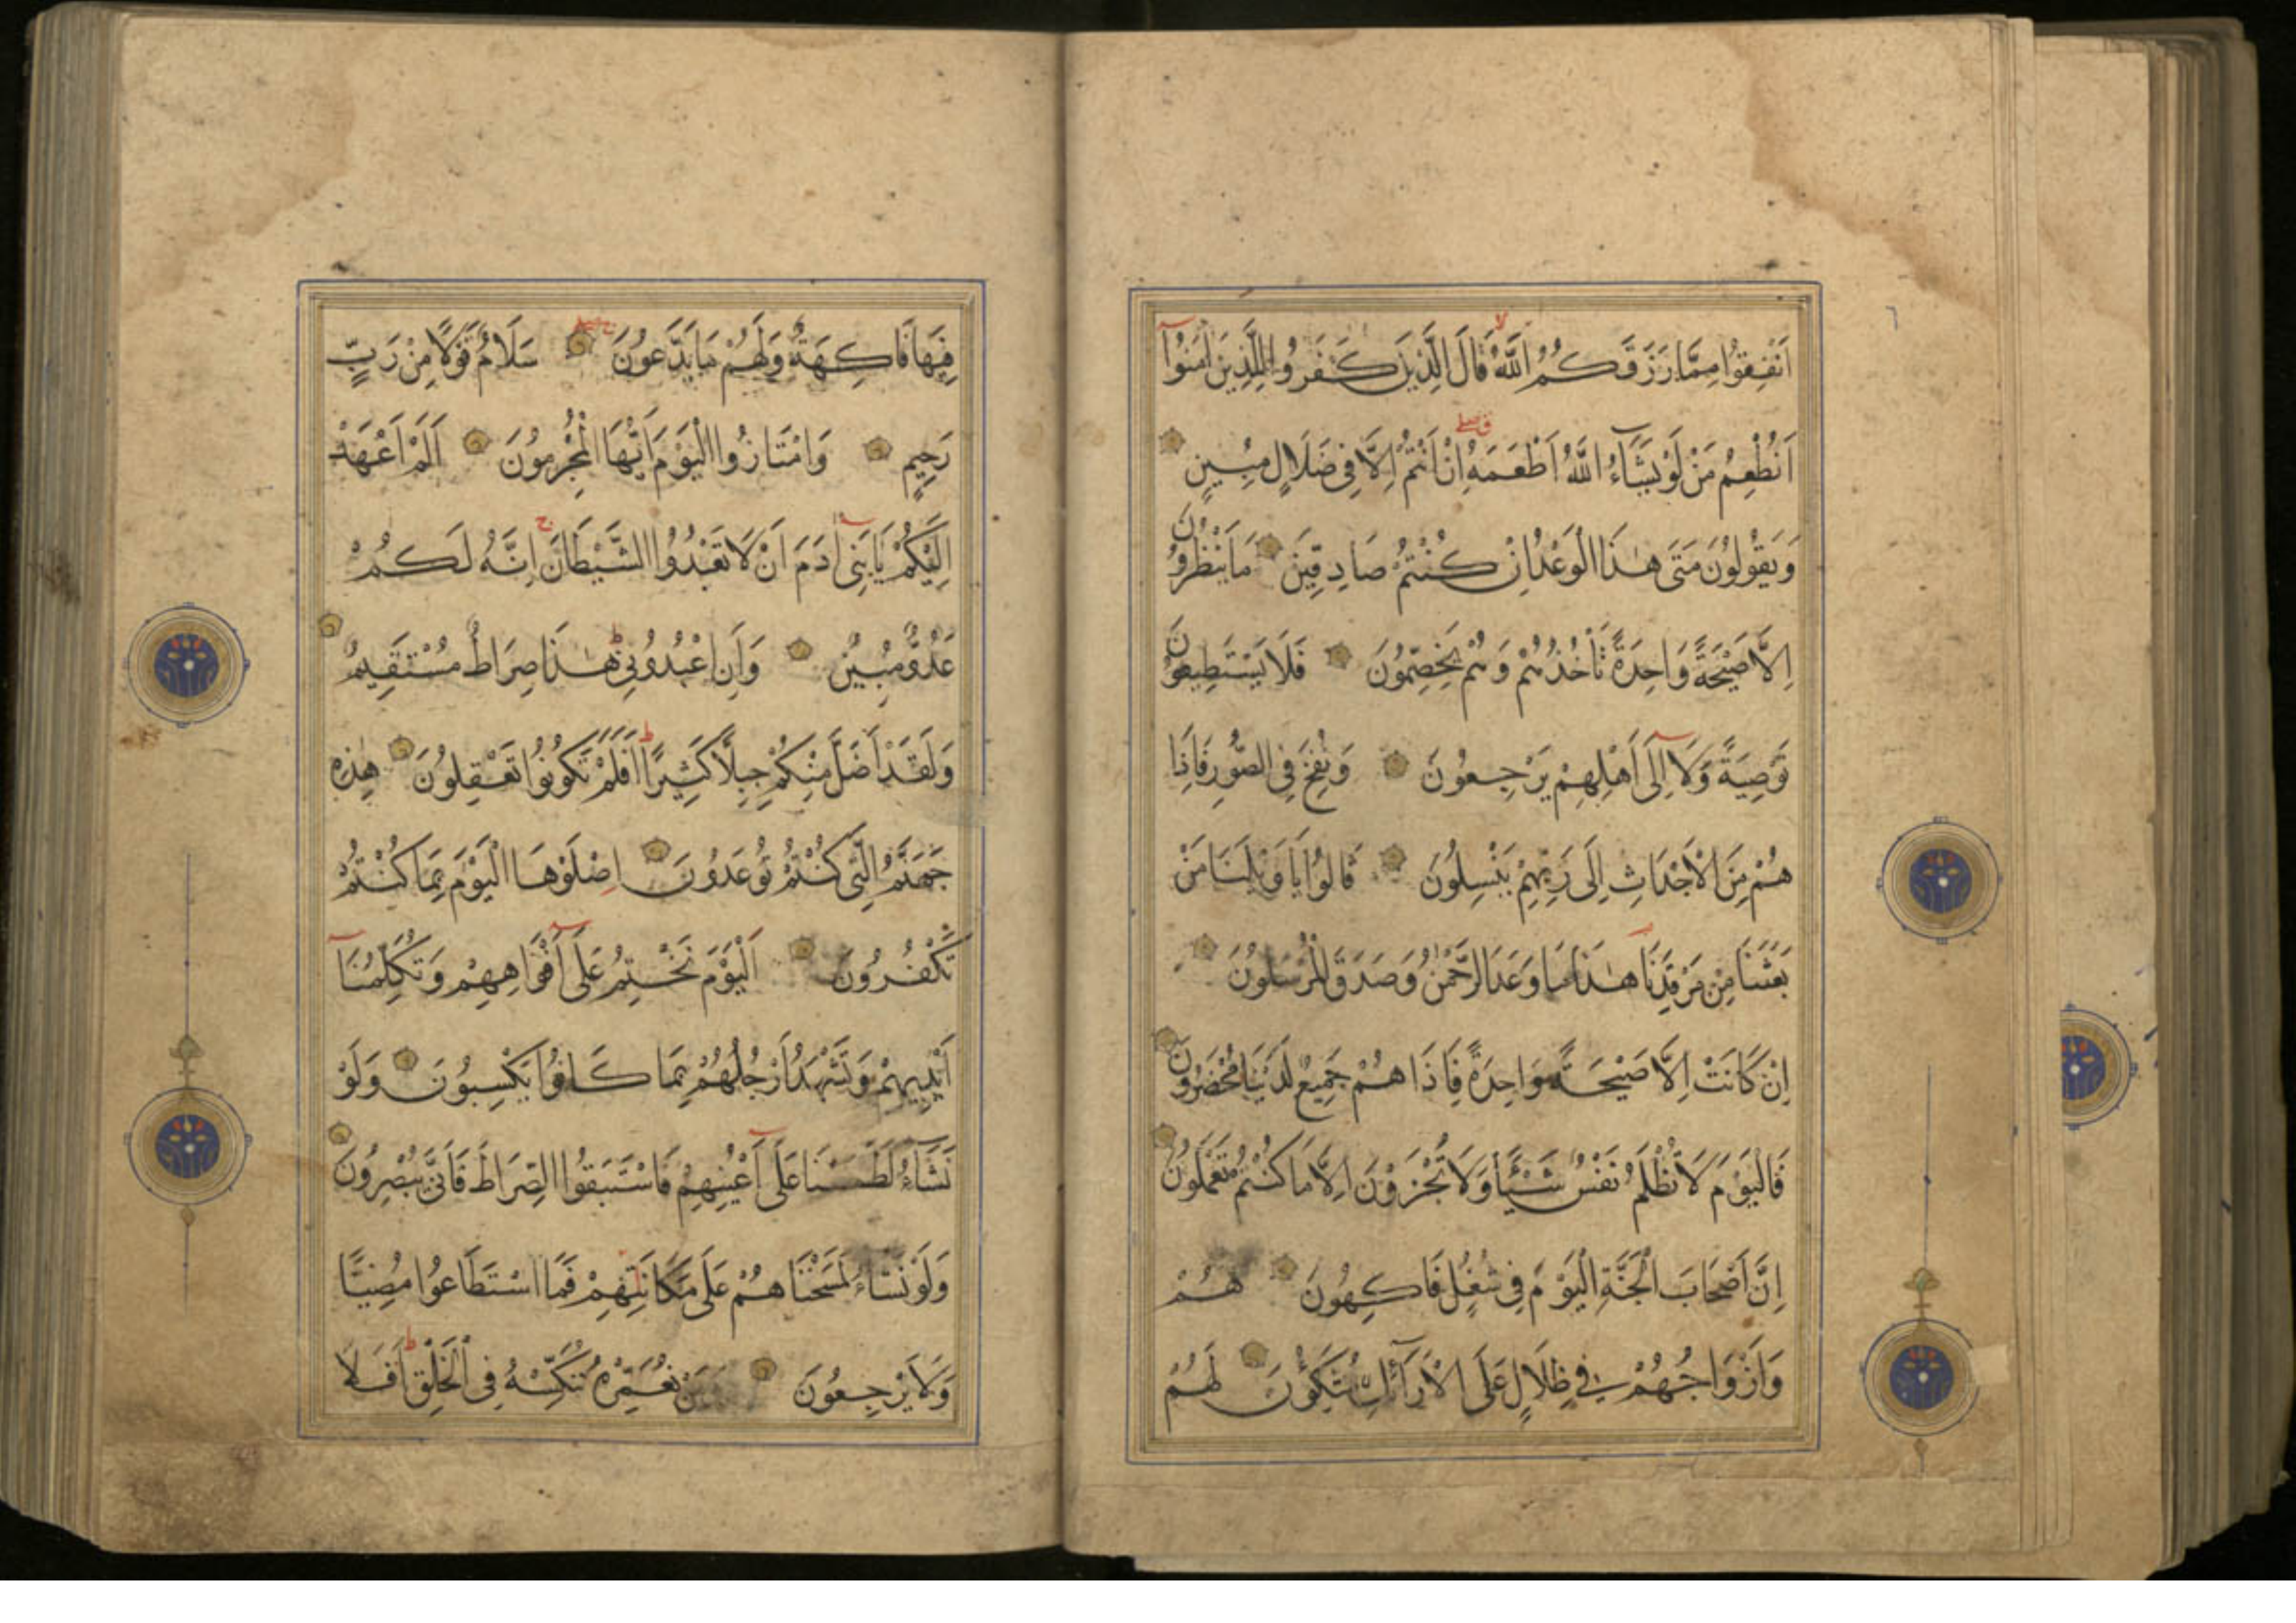 اَنْفِقُوا مِمَّا رَزَقَكُمُ اللّٰهُ قَالَ الَّذِينَ كَفَرُوا لِلَّذِينَ اٰمَنُوٓا
اَنُطْعِمُ مَنْ لَوْ يَشَآءُ اللّٰهُ اَطْعَمَهُ اِنْ اَنْتُمْ اِلَّا فِى ضَلَالٍ مُبِينٍ
وَيَقُولُونَ مَتَى هٰذَا الْوَعْدُ اِنْ كُنْتُمْ صَادِقِينَ مَا يَنْظُرُونَ
اِلَّا صَيْحَةً وَاحِدَةً تَأْخُذُهُمْ وَهُمْ يَخِصِّمُونَ فَلَا يَسْتَطِيعُونَ
تَوْصِيَةً وَلَآ اِلَى اَهْلِهِمْ يَرْجِعُونَ وَنُفِخَ فِى الصُّورِ فَاِذَا
هُمْ مِنَ الْاَجْدَاثِ اِلَى رَبِّهِمْ يَنْسِلُونَ قَالُوا يَا وَيْلَنَا مَنْ
بَعَثَنَا مِنْ مَرْقَدِنَا هٰذَا مَا وَعَدَ الرَّحْمٰنُ وَصَدَقَ الْمُرْسَلُونَ
اِنْ كَانَتْ اِلَّا صَيْحَةً وَاحِدَةً فَاِذَا هُمْ جَمِيعٌ لَدَيْنَا مُحْضَرُونَ
فَالْيَوْمَ لَا تُظْلَمُ نَفْسٌ شَيْئًا وَلَا تُجْزَوْنَ اِلَّا مَا كُنْتُمْ تَعْمَلُونَ
اِنَّ اَصْحَابَ الْجَنَّةِ الْيَوْمَ فِى شُغُلٍ فَاكِهُونَ هُمْ
وَاَزْوَاجُهُمْ فِى ظِلَالٍ عَلَى الْاَرَآئِكِ مُتَّكِؤُنَ لَهُمْ
فِيهَا فَاكِهَةٌ وَلَهُمْ مَا يَدَّعُونَ سَلَامٌ قَوْلًا مِنْ رَبٍّ
رَحِيمٍ وَامْتَازُوا الْيَوْمَ اَيُّهَا الْمُجْرِمُونَ اَلَمْ اَعْهَدْ
اِلَيْكُمْ يَا بَنِىٓ اٰدَمَ اَنْ لَا تَعْبُدُوا الشَّيْطَانَ اِنَّهُ لَكُمْ
عَدُوٌّ مُبِينٌ وَاَنِ اعْبُدُونِى هٰذَا صِرَاطٌ مُسْتَقِيمٌ
وَلَقَدْ اَضَلَّ مِنْكُمْ جِبِلًّا كَثِيرًا اَفَلَمْ تَكُونُوا تَعْقِلُونَ هٰذِهِ
جَهَنَّمُ الَّتِى كُنْتُمْ تُوعَدُونَ اِصْلَوْهَا الْيَوْمَ بِمَا كُنْتُمْ
تَكْفُرُونَ اَلْيَوْمَ نَخْتِمُ عَلَىٓ اَفْوَاهِهِمْ وَتُكَلِّمُنَآ
اَيْدِيهِمْ وَتَشْهَدُ اَرْجُلُهُمْ بِمَا كَانُوا يَكْسِبُونَ وَلَوْ
نَشَآءُ لَطَمَسْنَا عَلَىٓ اَعْيُنِهِمْ فَاسْتَبَقُوا الصِّرَاطَ فَاَنَّى يُبْصِرُونَ
وَلَوْ نَشَاءُ لَمَسَخْنَاهُمْ عَلَى مَكَانَتِهِمْ فَمَا اسْتَطَاعُوا مُضِيًّا
وَلَا يَرْجِعُونَ وَمَنْ نُعَمِّرْهُ نُنَكِّسْهُ فِى الْخَلْقِ اَفَلَا